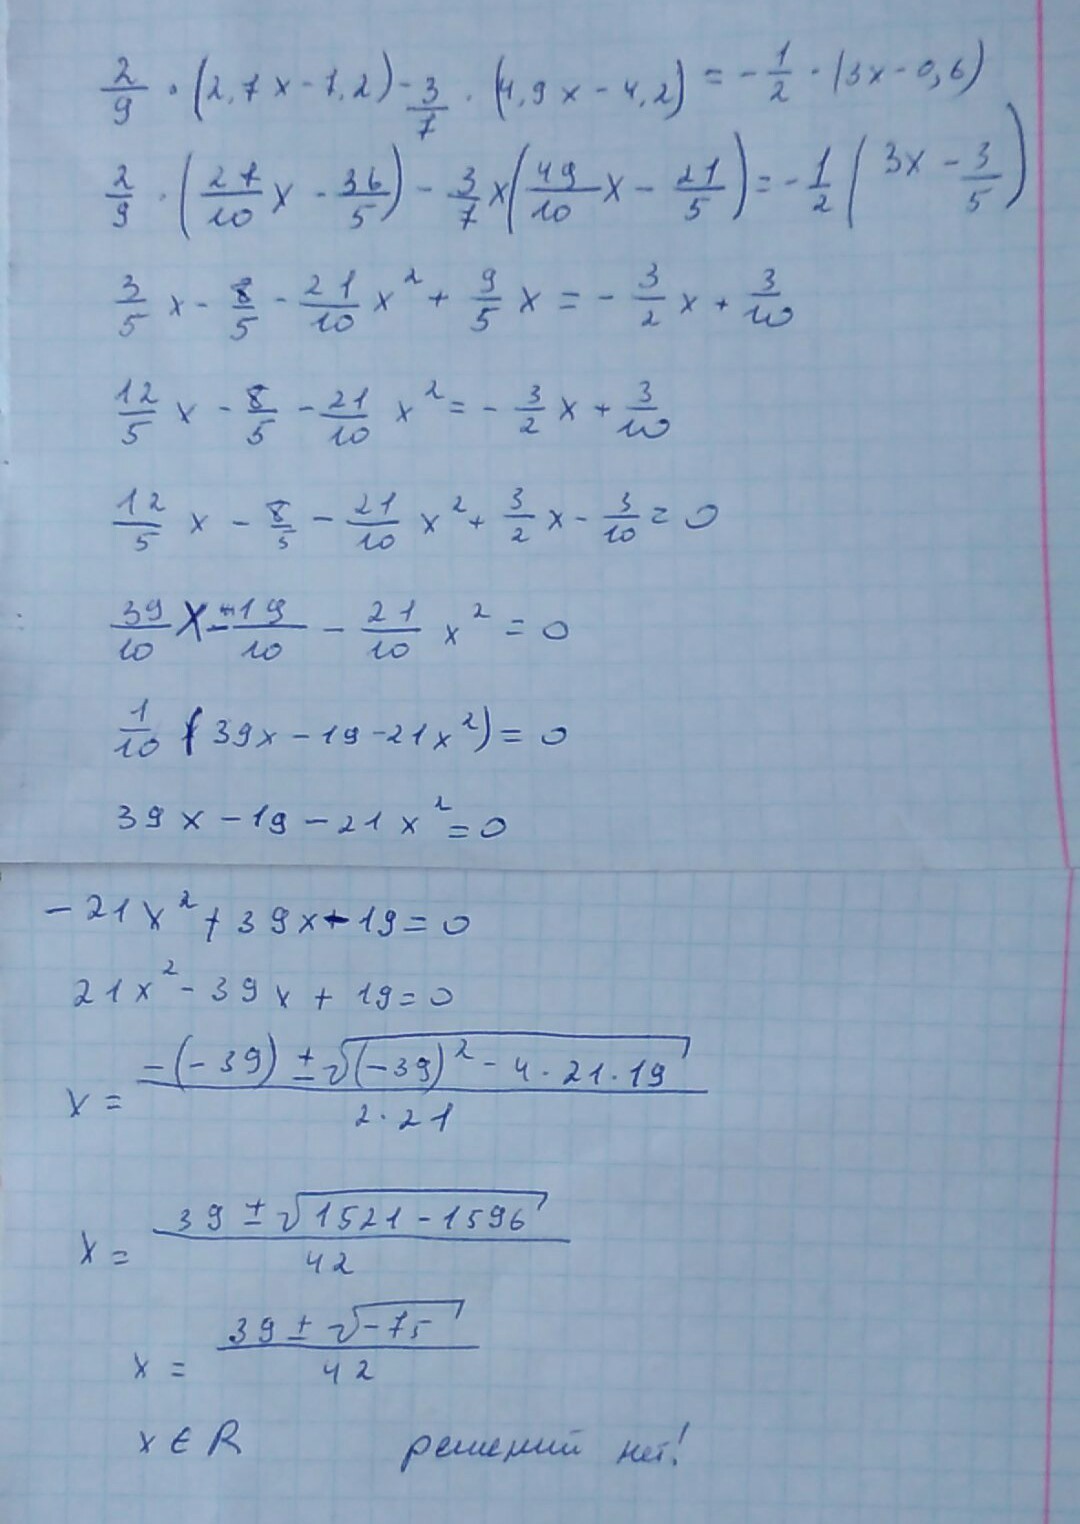 2/9 · (2,7x - 7,2) - 3/7 · (4,9x - 4,2) = - 1/2 · (3x - 0,6)
2/9 · (27/10 x - 36/5) - 3/7 x (49/10 x - 21/5) = - 1/2 (3x - 3/5)
3/5 x - 8/5 - 21/10 x² + 9/5 x = - 3/2 x + 3/10
12/5 x - 8/5 - 21/10 x² = - 3/2 x + 3/10
12/5 x - 8/5 - 21/10 x² + 3/2 x - 3/10 = 0
39/10 x - 19/10 - 21/10 x² = 0
1/10 (39x - 19 - 21x²) = 0
39x - 19 - 21x² = 0
- 21x² + 39x - 19 = 0
21x² - 39x + 19 = 0
x = (-(-39) ± √((-39)² - 4 · 21 · 19)) / (2 · 21)
x = (39 ± √(1521 - 1596)) / 42
x = (39 ± √(-75)) / 42
x ∈ R решений нет!